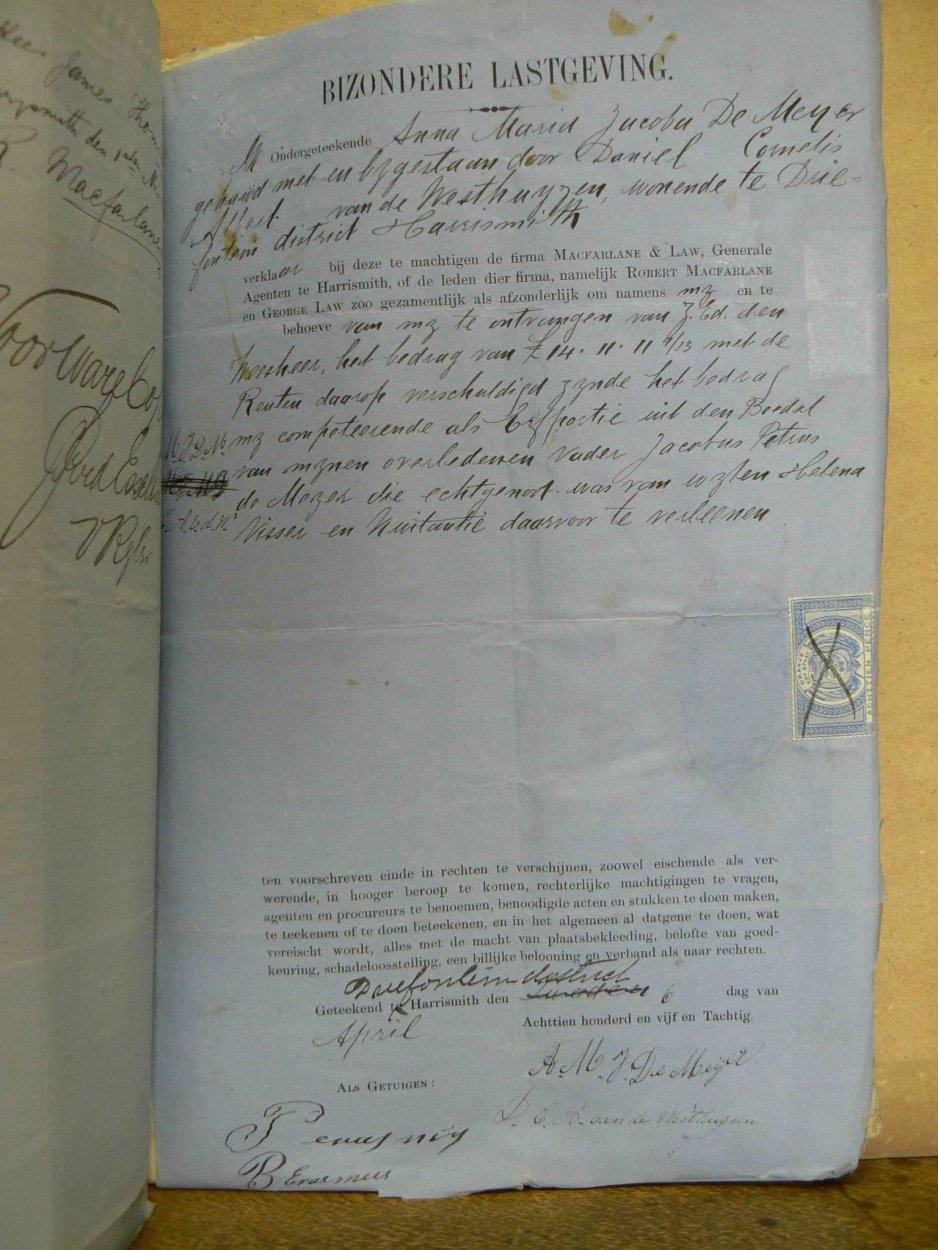 James Thom
den 1sten
R. Macfarlane
Voor Ware Co
BIZONDERE LASTGEVING.
Ik Ondergeteekende Anna Maria Jacoba De Meyer
gehuwd met en bygestaan door Daniel Cornelis
van de Westhuyzen, wonende te Drie-
fontein district Harrismith
verklaar bij deze te machtigen de firma MACFARLANE & LAW, Generale
Agenten te Harrismith, of de leden dier firma, namelijk ROBERT MACFARLANE
en GEORGE LAW zoo gezamentlijk als afzonderlijk om namens my en te
behoeve van my te ontvangen van Z.Ed. den
Weesheer, het bedrag van £14.11.11 9/13 met de
Renten daarop verschuldigd zynde het bedrag
my competeerende als Erfportie uit den Boedel
van mynen overledenen vader Jacobus Petrus
de Meyer die echtgenoot was van wylen Helena
Visser en Kwitantie daarvoor te verleenen
ORANJE
ACHTTIEN PENCE
ten voorschreven einde in rechten te verschijnen, zoowel eischende als ver-
werende, in hooger beroep te komen, rechterlijke machtigingen te vragen,
agenten en procureurs te benoemen, benoodigde acten en stukken te doen maken,
te teekenen of te doen beteekenen, en in het algemeen al datgene te doen, wat
vereischt wordt, alles met de macht van plaatsbekleeding, belofte van goed-
keuring, schadeloosstelling, een billijke belooning en verband als naar rechten.
Driefontein district
Geteekend te Harrismith den 6 dag van
April Achttien honderd en vijf en Tachtig.
A. M. J. De Meyer
ALS GETUIGEN:
D. C. A. van de Westhuyzen
B Erasmus